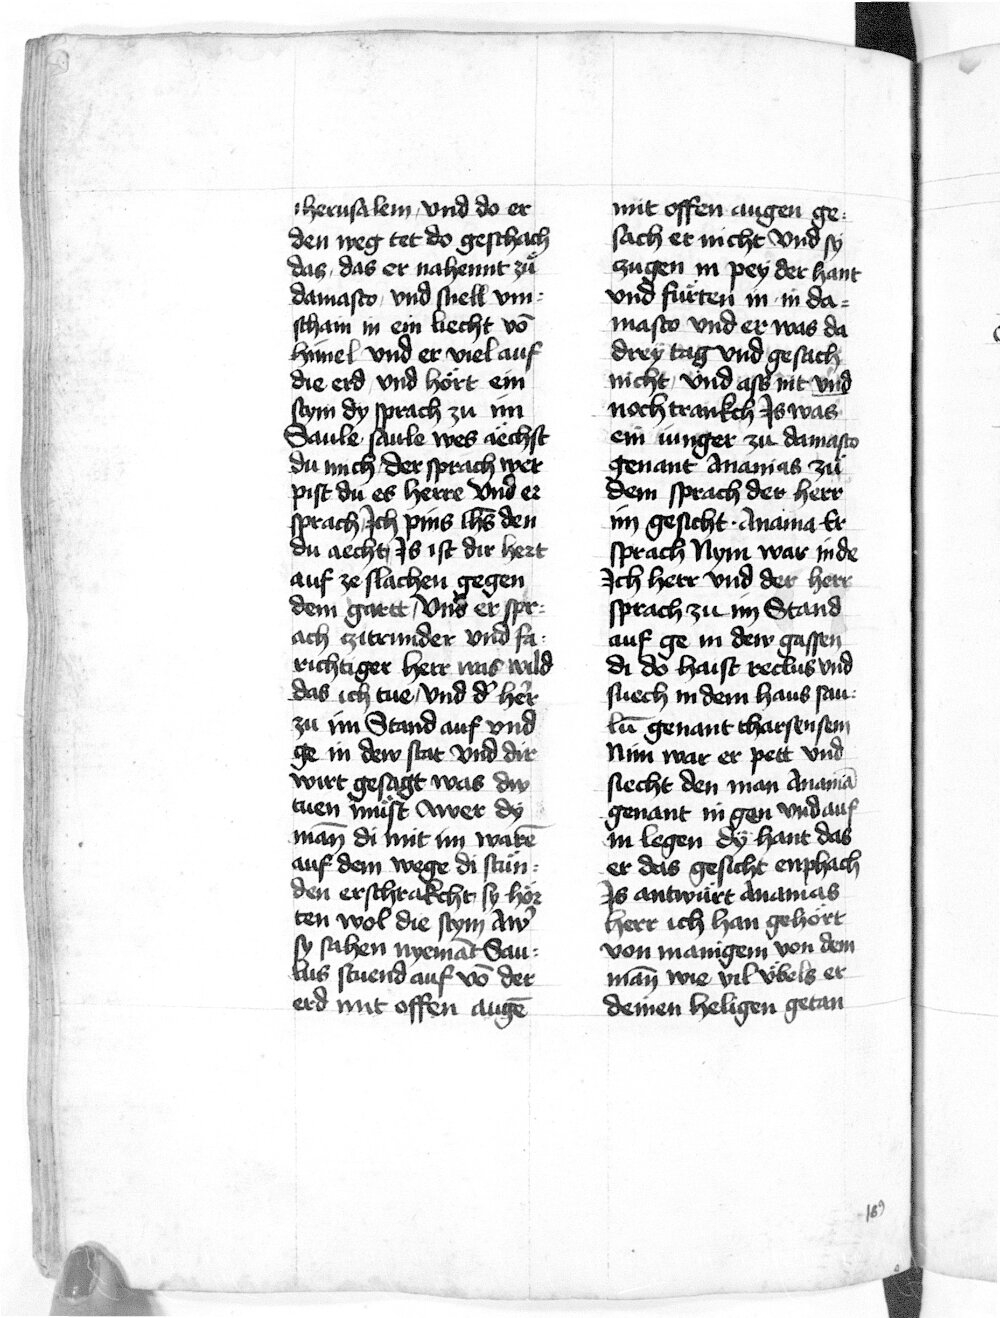 iherusalem, vnd do er
den weg tet do geschach
das, das er nahennt zů
damasco, vnd snell vm=
schain in ein liecht vō
himel vnd er viel auf
die erd, vnd hört ein
stym dy sprach zu im
Saule, saule wes aechst
du mich, der sprach wer
pist du es herre Vnd er
sprach, Ich pins ihs̄ den
du aecht, Is ist dir hert
auf ze slachen gegen
dem gartt, Vnd er spr=
ach czitrinder vnd fa=
richtiger herr was wild
das ich tue, vnd d' her̄r
zu im Stand auf vnd
ge in dew stat Vnd dir
wirt gesagt was dw
tuen můst Awer dy
man̄ di mit im warē
auf dem wege di stůn=
den erschrakcht, sy hör
ten wol die stym Aw'
sy sahen nyemāt Sau=
lus stuend auf vō der
erd mit offen augē
mit offen augen ge=
sach er nicht Vnd sy
czugen in pey der hant
vnd fůrten in in da=
masco vnd er was da
drey tag vnd gesach
nicht, vnd ass nit vnd
noch trankch Is was
ein iunger zu damasco
genant Ananias zů
dem sprach der herr
im gesicht. Anania Er
sprach Nym war in de
Ich herr vnd der herr
sprach zu im Stand
auf ge in dew gassen
di do haist rectus vnd
suech in dem haus sau=
lū genant tharsensem
Nim war er pett vnd
siecht den man Ananiā
genant in gen vnd auf
in legen dy hant das
er das gesicht enphach
Is antwürt Ananias
herr ich han gehört
von manigem von dem
man̄ wie vil vbels er
deinen heligen getan
169